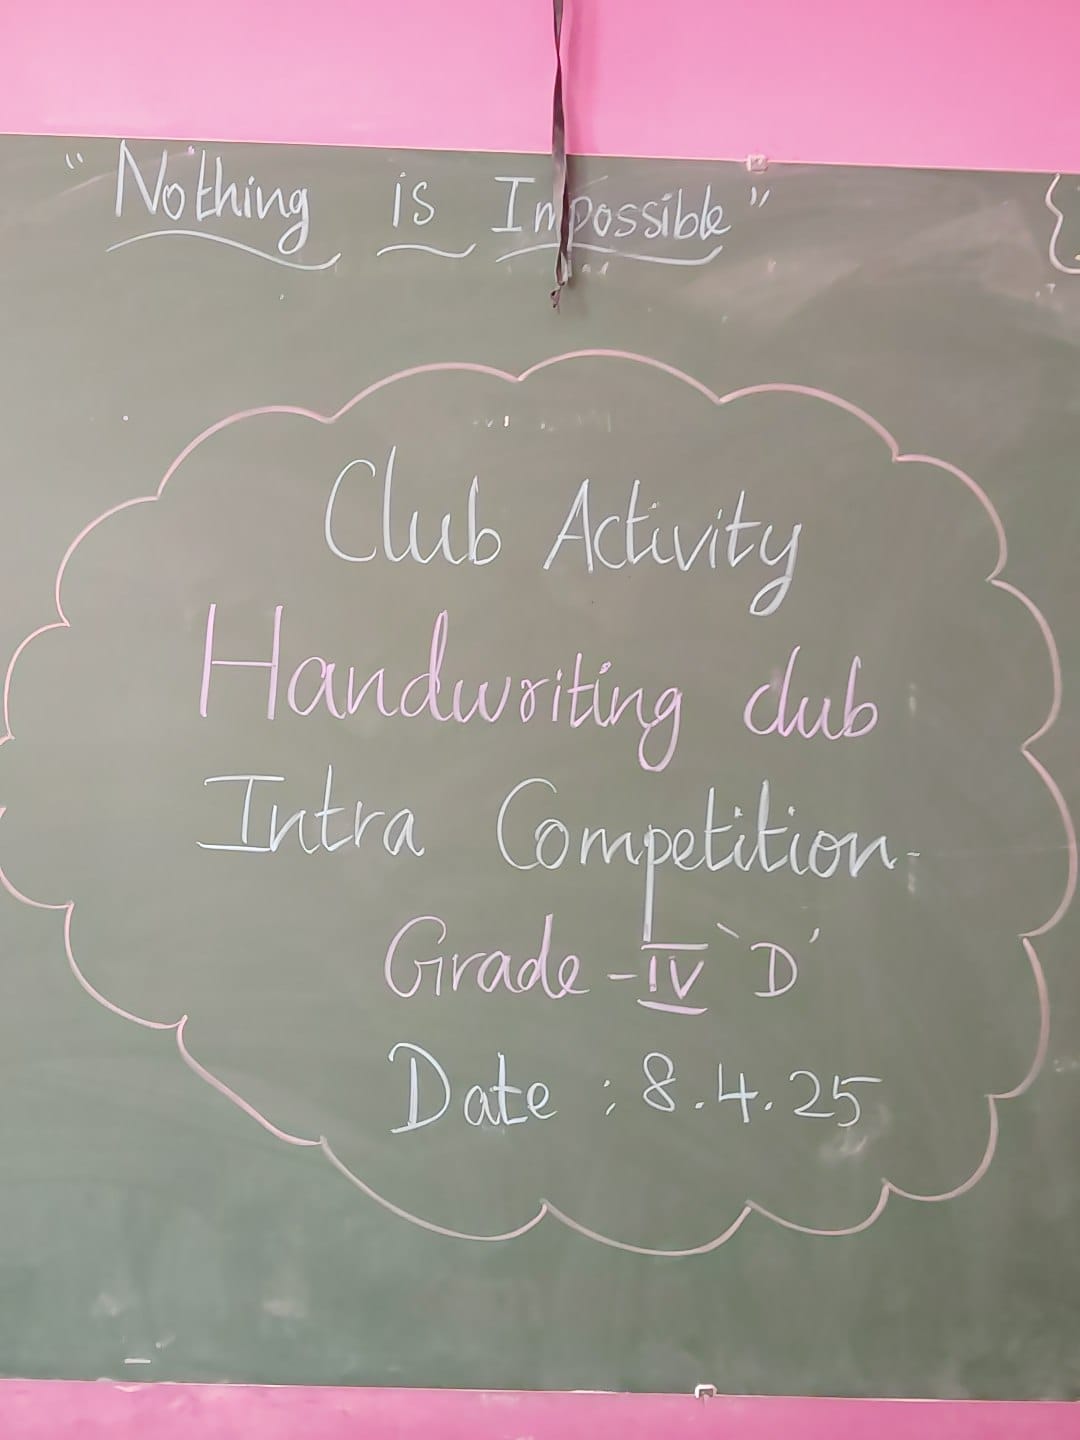 "Nothing is Impossible"
Club Activity
Handwriting club
Intra Competition
Grade - IV 'D'
Date : 8.4.25